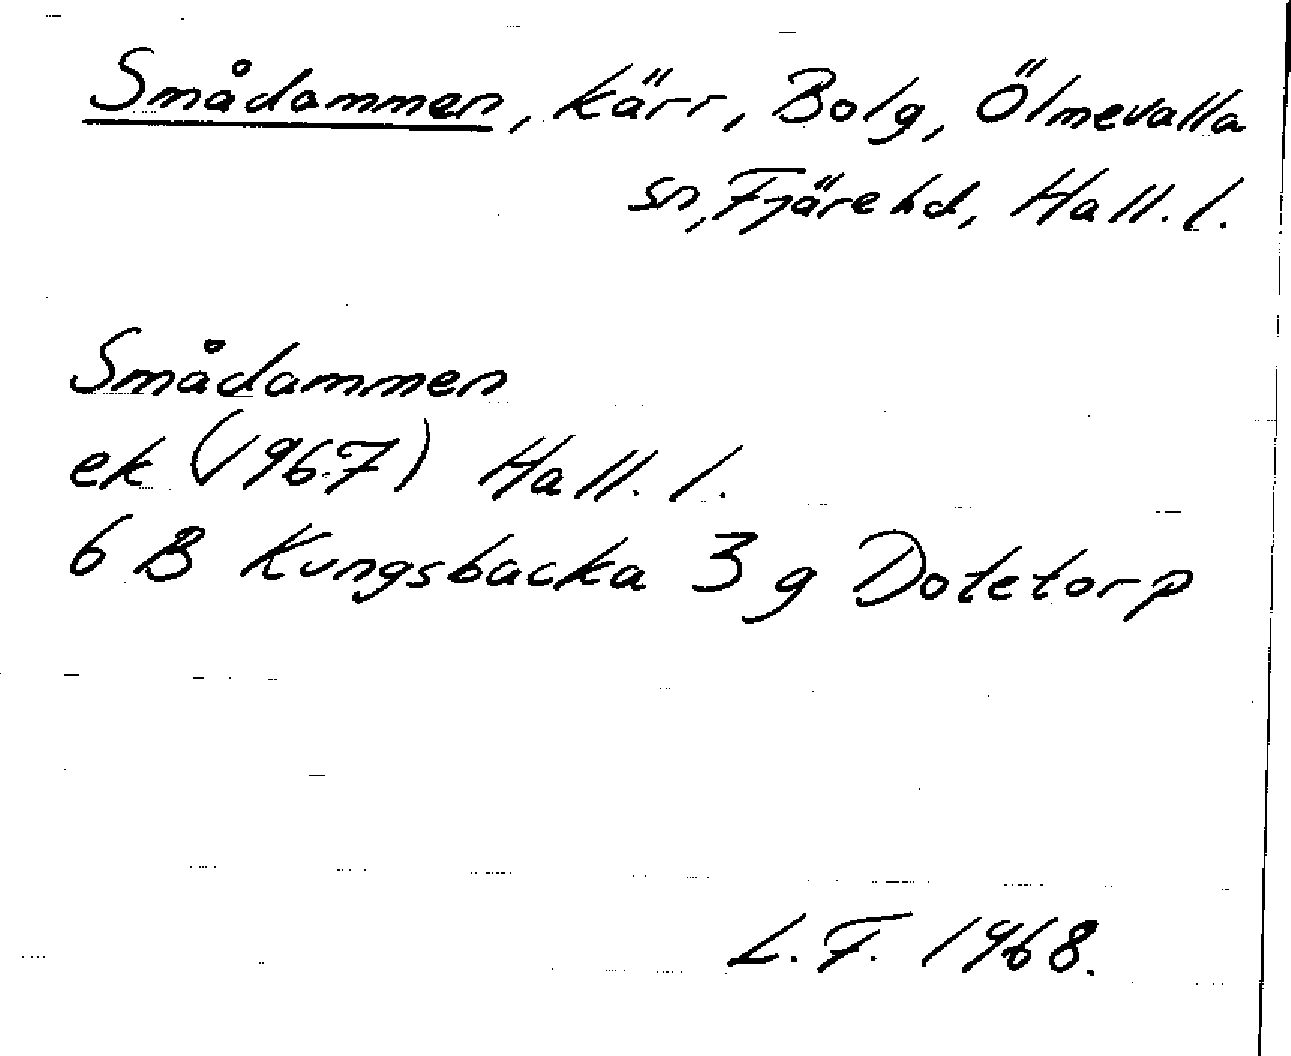 Smådammen, kärr, Bolg, Ölmevalla
sn, Fjäre hd, Hall. l.
Smådammen
ek (1967) Hall. l.
6 B Kungsbacka 3 g Dotetorp
L. F. 1968.